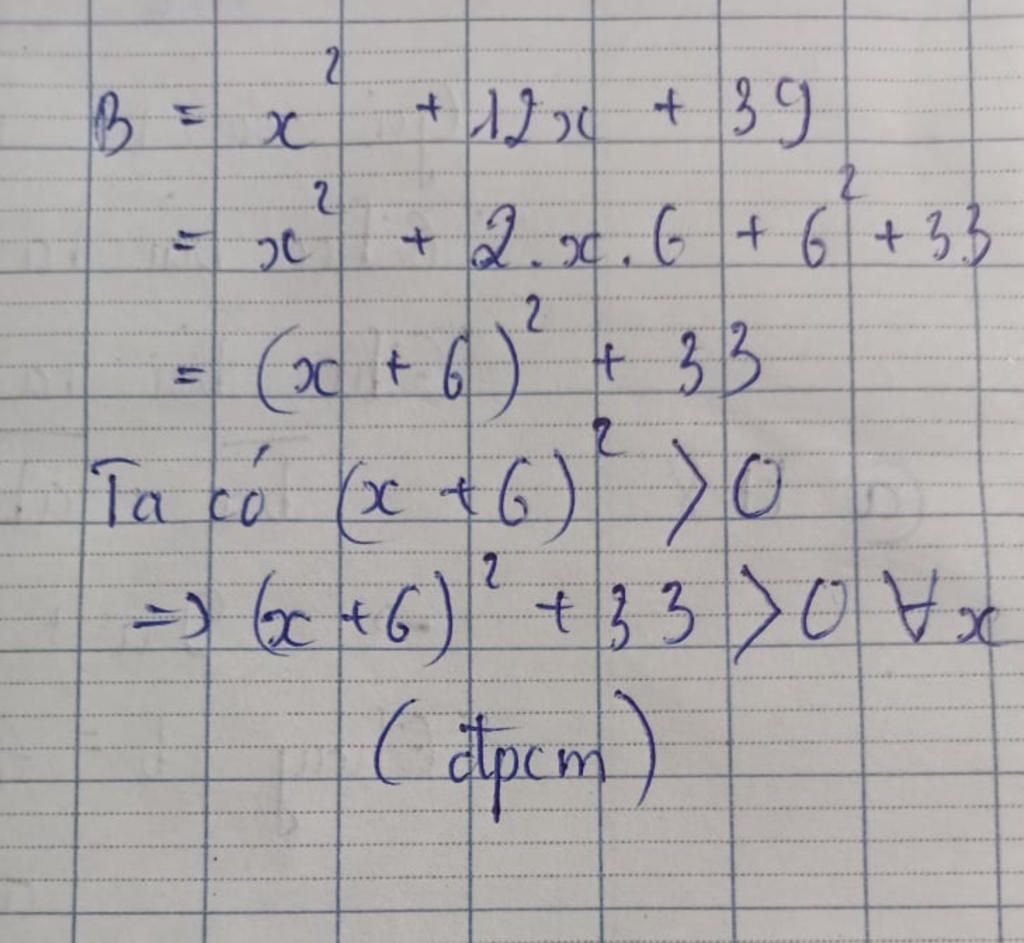 B = x² + 12x + 39
= x² + 2.x.6 + 6² + 33
= (x + 6)² + 33
Ta có (x + 6)² > 0
=> (x + 6)² + 33 > 0 ∀x
(đpcm)